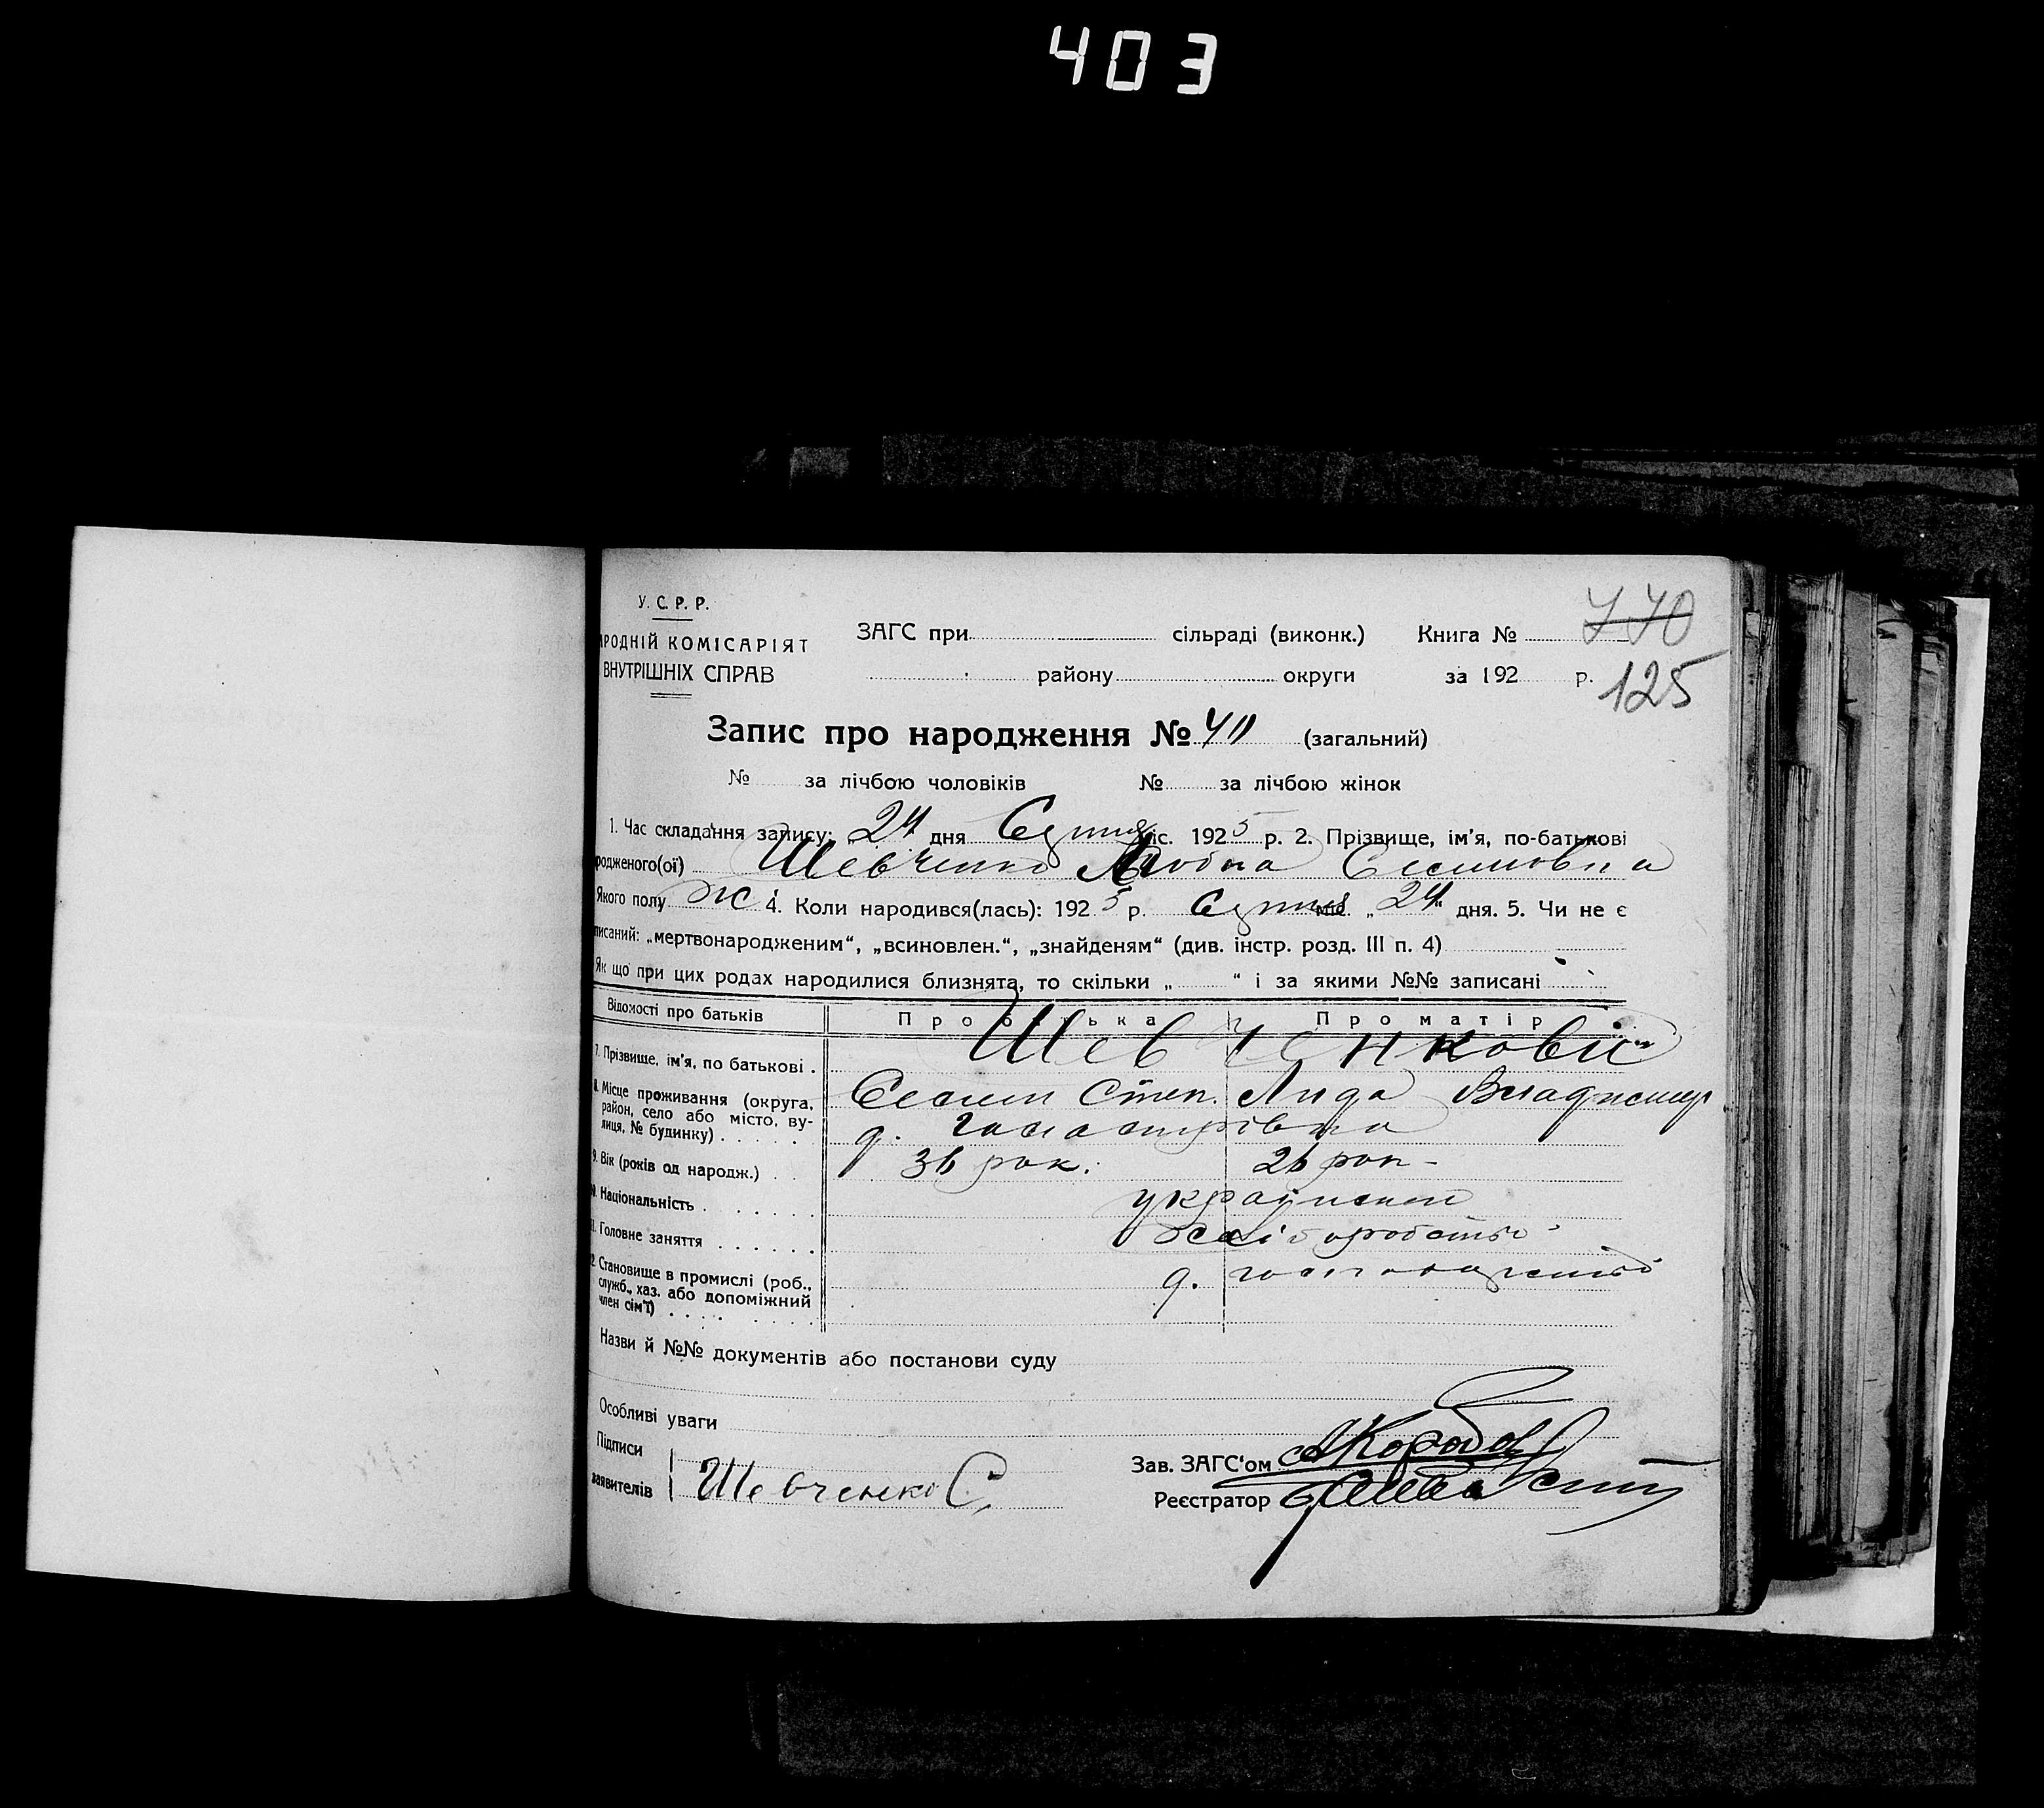 403
У. С. Р. Р.
АРОДНІЙ КОМІСАРІЯТ
ВНУТРІШНІХ СПРАВ
ЗАГС при сільраді (виконк.) Книга № 770
району округи за 192 р. 125
Запис про народження № 411 (загальний)
№ за лічбою чоловіків № за лічбою жінок
1. Час складання запису: „24 дня Серпня міс. 1925 р. 2. Прізвище, ім'я, по-батькові
родженого(ої) Шевченко
Якого полу ж 4. Коли народився(лась): 1925 р. Серпня міс. „24“ дня. 5. Чи не є
писаний: „мертвонародженим“, „всиновлен.“, „знайденям“ (див. інстр. розд. III п. 4)
Як що при цих родах народилися близнята, то скільки „ “ і за якими №№ записані
Відомості про батьків Про батька Про матір
7. Прізвище, ім'я, по батькові . Шевченкови
8. Місце проживання (округа, район, село або місто, вулиця, № будинку) . . . . . Степ. Лида Владимир
д.
9. Вік (років од народж.) . . 36 рок. 26 рок
10. Національність . . . . . . .
11. Головне заняття . . . . . . хліборобство
12. Становище в промислі (роб., служб., хаз. або допоміжний член сім'ї) . . . . . . . . д.
Назви й №№ документів або постанови суду
Особливі уваги
Підписи
заявителів Шевченко С
Зав. ЗАГС‘ом
Реєстратор